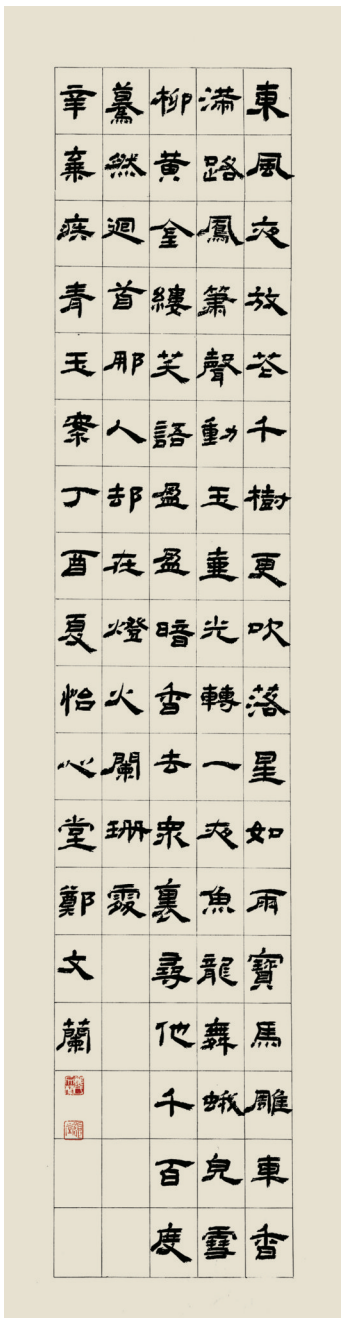 東風夜放花千樹更吹落星如雨寶馬雕車香
滿路鳳簫聲動玉壷光轉一夜魚龍舞蛾兒雪
柳黃金縷笑語盈盈暗香去衆裏尋他千百度
驀然迴首那人却在燈火闌珊霧
辛棄疾青玉案丁酉夏怡心堂鄭文蘭